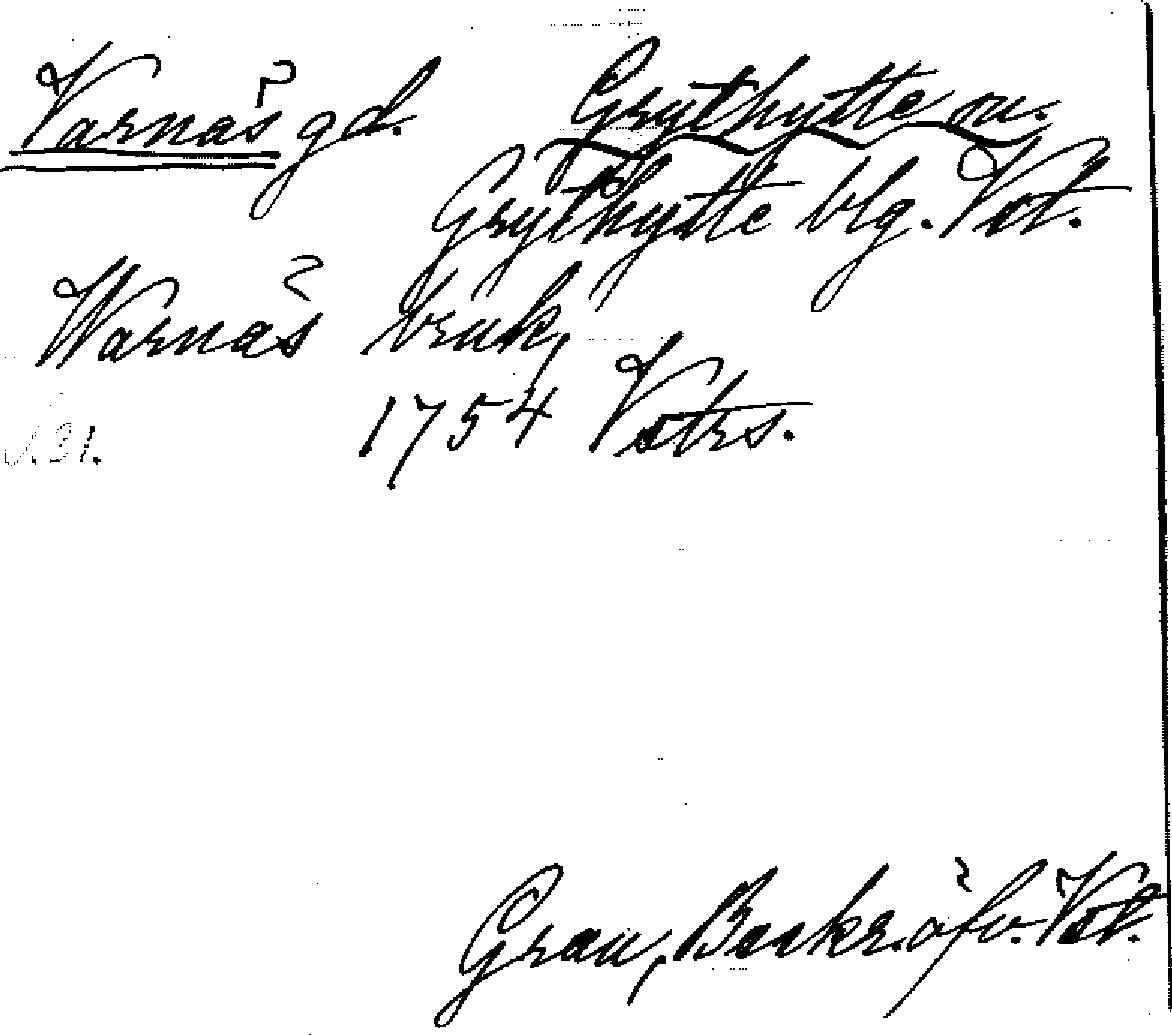 Varnäs gd. Grythytte sn.
Grythytte blg. Vstm.
Warnäs bruk,
1754 Vstrs.
Grau, Beskr. öfv. Vstm.